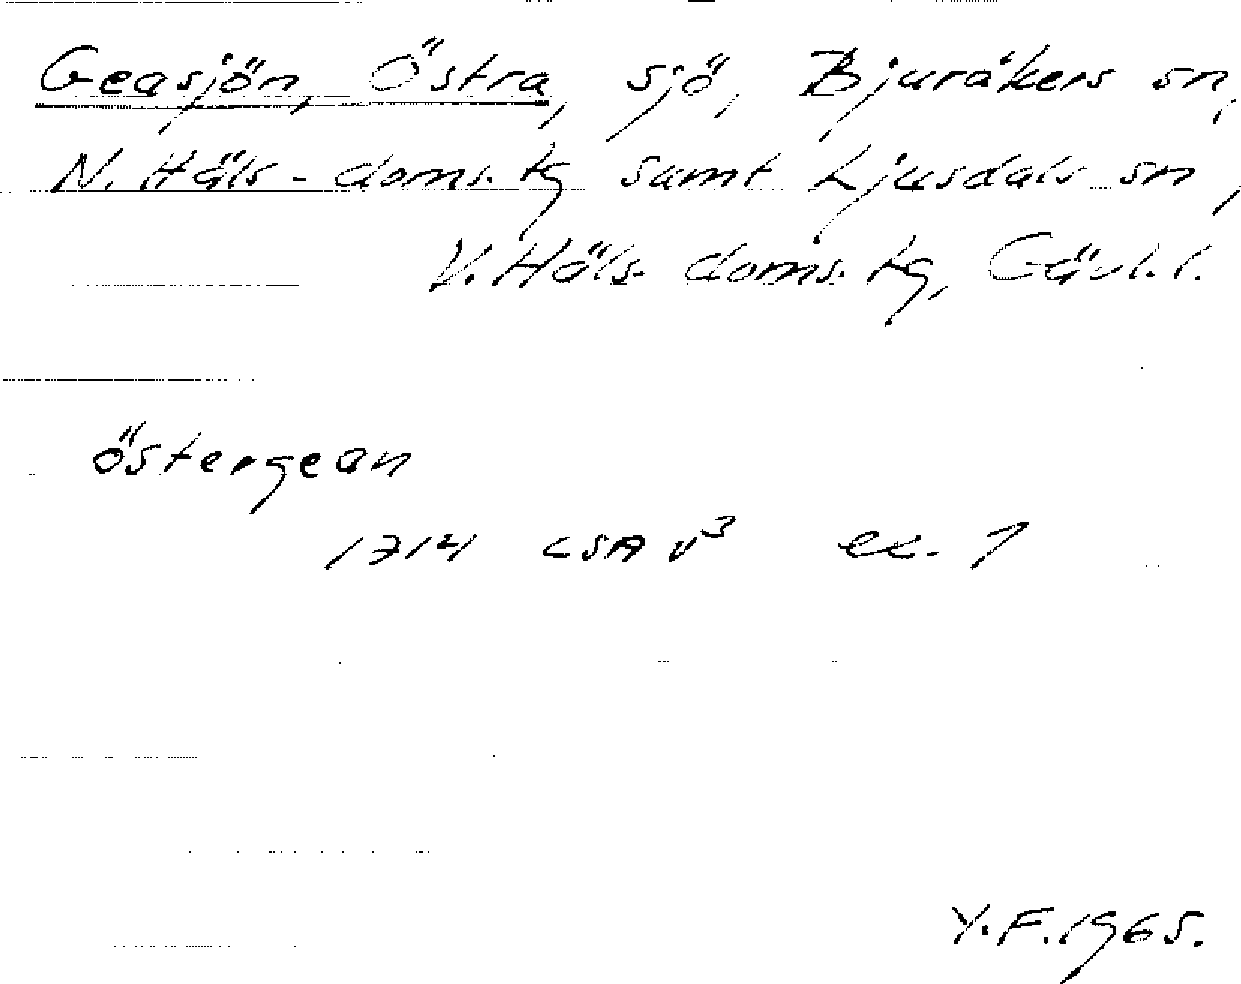 Geasjön, Östra, sjö, Bjuråkers sn,
N. Häls. doms. tg samt Ljusdals sn,
V. Häls. doms. tg, Gävl. l.
östergean
1714 LSA v³ ec. 1
Y.F. 1965.